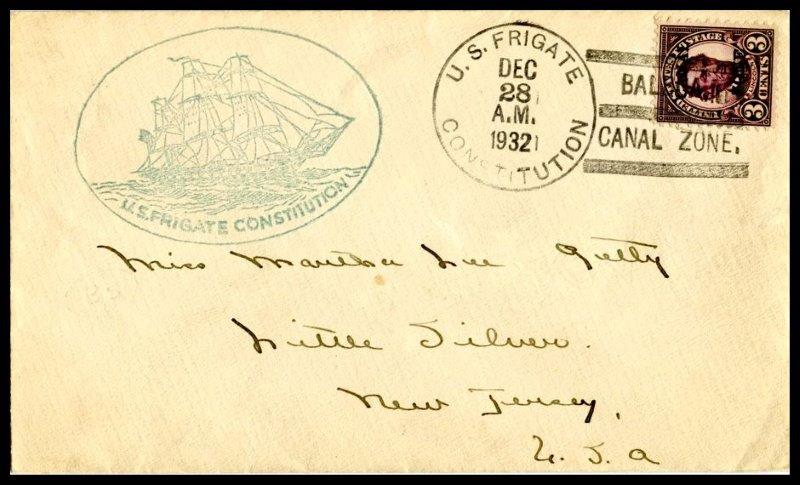 U.S. FRIGATE CONSTITUTION
U. S. FRIGATE
CONSTITUTION
DEC
28
A.M.
1932
CANAL ZONE.
UNITED STATES POSTAGE
3 CENTS 3
Miss Martha Lee Getty
Little Silver.
New Jersey,
U. S. a